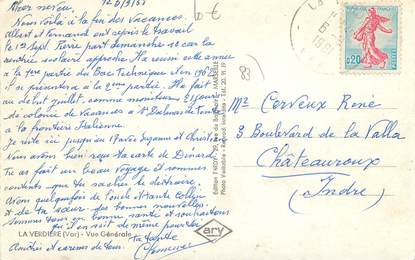 12/9/61
Cher neveu.
Nous voilà à la fin des Vacances.
Albert et Fernand ont repris le travail
le 12 Sept. Pierre part dimanche car la
rentrée scolaire approche. Il a réussi cette année
à la 1ère partie du Bac Technique. En 1962
il se présentera à la 2ème partie. Il a fait
au début juillet comme moniteur
de colonie de Vacances à St Dalmas de Tende
à la frontière Italienne.
Je reste ici jusqu'au avec Suzanne et Christian
Nous avons bien reçu ta carte de Dinard.
Tu as fait un beau Voyage et sommes
contents que tu saches te distraire.
Avons quelquefois de l'oncle
et de ta sœur des bonnes nouvelles.
Sommes tous en bonne santé et souhaitons
qu'il en soit de même pour toi
ta tante
Amitiés et caresses de tous.
LA VERDIÈRE (Var) - Vue Générale
ary
83
6
1961
0,20
Mr Cerveux René
3 Boulevard de la Valla
Châteauroux
(Indre)